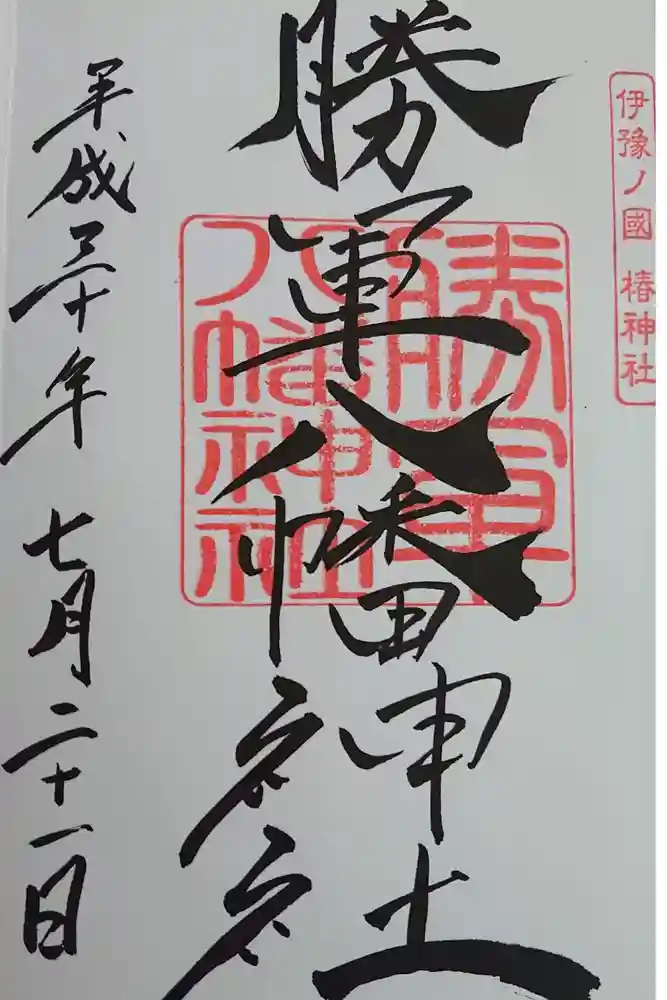 伊豫ノ國 椿神社
勝軍八幡神社
勝軍
八幡神社
平成三十年 七月二十一日